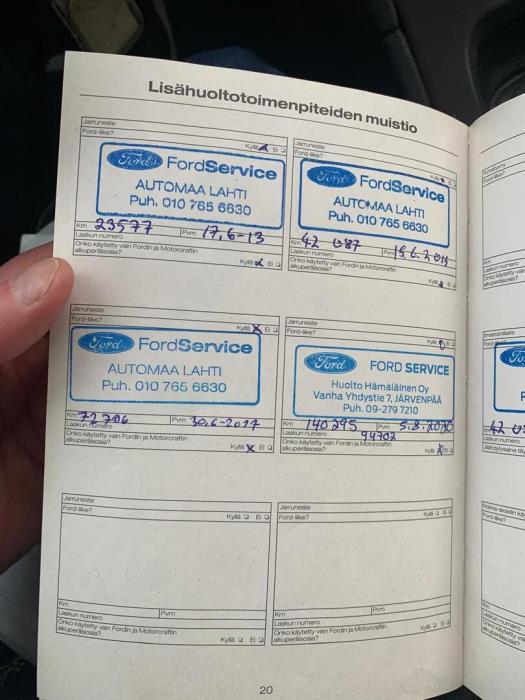 Lisähuoltotoimenpiteiden muistio
Jarruneste
Ford-liike?
Kyllä Ei
Ford FordService
AUTOMAA LAHTI
Puh. 010 765 6630
Km 23577 Pvm 17,6-13
Laskun numero
Onko käytetty vain Fordin ja Motorcraftin
alkuperäisosia?
Kyllä Ei
Jarruneste
Ford-liike?
Ford FordService
AUTOMAA LAHTI
Puh. 010 765 6630
Km 42 087 Pvm
Laskun numero
Onko käytetty vain Fordin ja Motorcraftin
alkuperäisosia?
Kyllä Ei
Jarruneste
Ford-liike?
Kyllä Ei
Ford FordService
AUTOMAA LAHTI
Puh. 010 765 6630
Km 72706 Pvm 30,6-2017
Laskun numero
Onko käytetty vain Fordin ja Motorcraftin
alkuperäisosia?
Kyllä Ei
Jarruneste
Ford-liike?
Kyllä Ei
Ford FORD SERVICE
Huolto Hämäläinen Oy
Vanha Yhdystie 7, JÄRVENPÄÄ
Puh. 09-279 7210
Km 140295 Pvm 5.8.2020
Laskun numero 94702
Onko käytetty vain Fordin ja Motorcraftin
alkuperäisosia?
Kyllä Ei
Jarruneste
Ford-liike?
Kyllä Ei
Km Pvm
Laskun numero
Onko käytetty vain Fordin ja Motorcraftin
alkuperäisosia?
Kyllä Ei
Jarruneste
Ford-liike?
Kyllä Ei
Km Pvm
Laskun numero
Onko käytetty vain Fordin ja Motorcraftin
alkuperäisosia?
Kyllä Ei
20